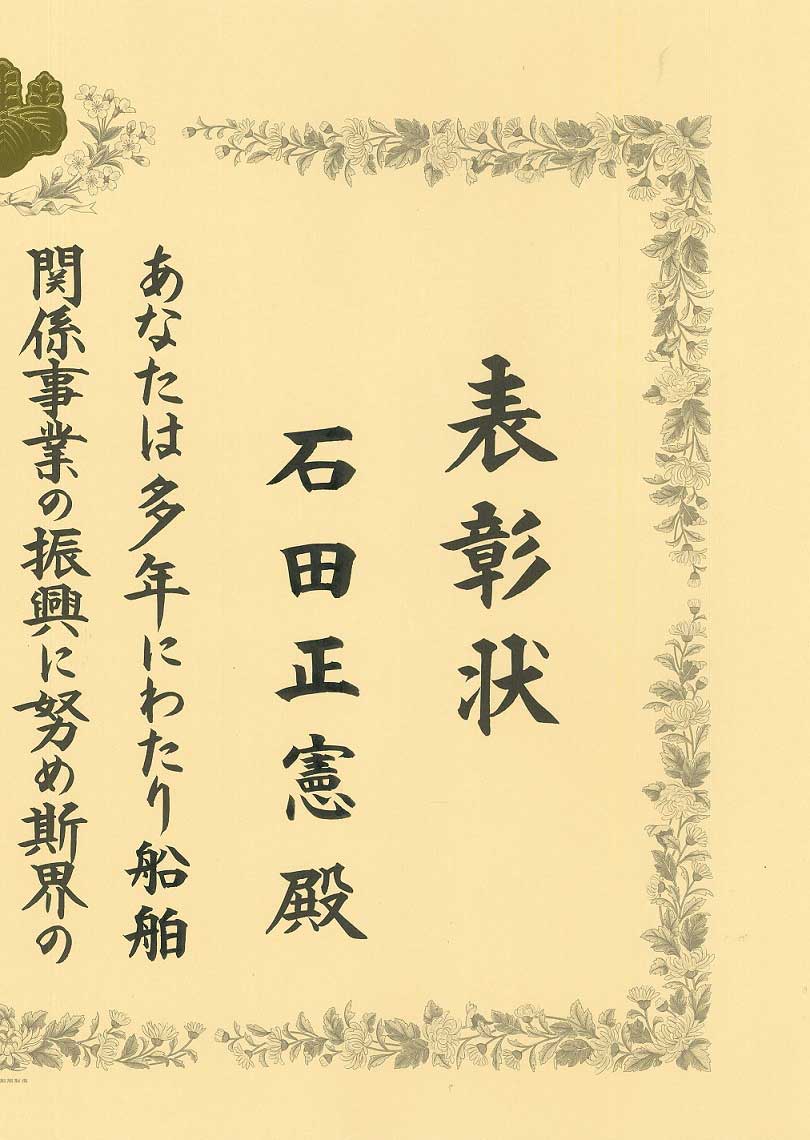 表彰状
石田正憲殿
あなたは多年にわたり船舶
関係事業の振興に努め斯界の